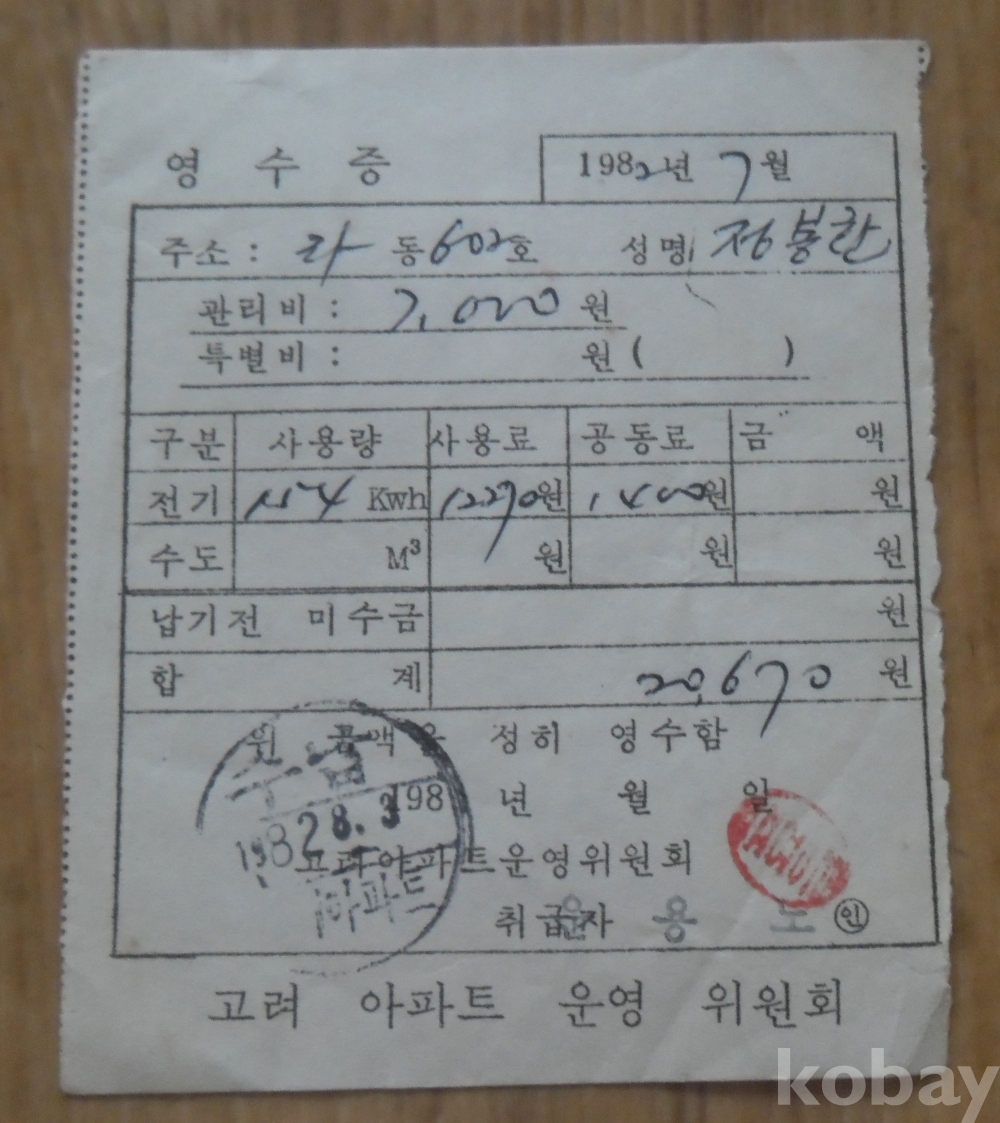 영 수 증
1982년 7월
주소 : 라 동 602호 성명 정봉란
관리비 : 7,000 원
특별비 : 원 ( )
구분 사용량 사용료 공동료 금 액
전기 154 Kwh 12270원 1400원 원
수도 M³ 원 원 원
납기전 미수금 원
합 계 20,670 원
윈 금액을 정히 영수함
198 년 월 일
수납
1982 8. 3
고려아파트운영위원회
아파트
취급자 윤 용 노 ㊞
고려 아파트 운영 위원회
kobay